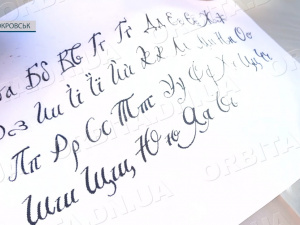 ОКРОВСЬК
а Бб Вв Гг Ґґ Дд Ее Єє Жж
Зз Ии Іі Її Йй Кк Лл Мм Нн Оо
Пп Рр Сс Тт Уу Фф Хх Цц Чч
Шш Щщ Юю Яя Ьь
ORBITA.DN.UA